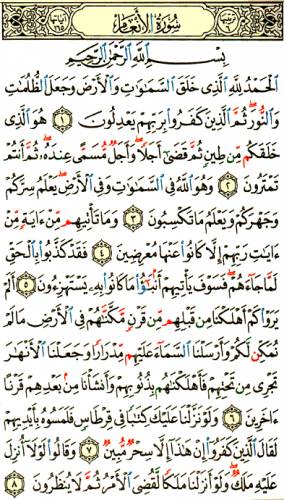 سُورَةُ الأَنْعَامِ
بِسْمِ ٱللَّهِ ٱلرَّحْمَٰنِ ٱلرَّحِيمِ
ٱلْحَمْدُ لِلَّهِ ٱلَّذِى خَلَقَ ٱلسَّمَٰوَٰتِ وَٱلْأَرْضَ وَجَعَلَ ٱلظُّلُمَٰتِ
وَٱلنُّورَ ثُمَّ ٱلَّذِينَ كَفَرُوا۟ بِرَبِّهِمْ يَعْدِلُونَ ١ هُوَ ٱلَّذِى
خَلَقَكُم مِّن طِينٍ ثُمَّ قَضَىٰٓ أَجَلًا وَأَجَلٌ مُّسَمًّى عِندَهُۥ ثُمَّ أَنتُمْ
تَمْتَرُونَ ٢ وَهُوَ ٱللَّهُ فِى ٱلسَّمَٰوَٰتِ وَفِى ٱلْأَرْضِ يَعْلَمُ سِرَّكُمْ
وَجَهْرَكُمْ وَيَعْلَمُ مَا تَكْسِبُونَ ٣ وَمَا تَأْتِيهِم مِّنْ ءَايَةٍ مِّنْ
ءَايَٰتِ رَبِّهِمْ إِلَّا كَانُوا۟ عَنْهَا مُعْرِضِينَ ٤ فَقَدْ كَذَّبُوا۟ بِٱلْحَقِّ
لَمَّا جَآءَهُمْ فَسَوْفَ يَأْتِيهِمْ أَنۢبَٰٓؤُا۟ مَا كَانُوا۟ بِهِۦ يَسْتَهْزِءُونَ ٥ أَلَمْ
يَرَوْا۟ كَمْ أَهْلَكْنَا مِن قَبْلِهِم مِّن قَرْنٍ مَّكَّنَّٰهُمْ فِى ٱلْأَرْضِ مَا لَمْ
نُمَكِّن لَّكُمْ وَأَرْسَلْنَا ٱلسَّمَآءَ عَلَيْهِم مِّدْرَارًا وَجَعَلْنَا ٱلْأَنْهَٰرَ
تَجْرِى مِن تَحْتِهِمْ فَأَهْلَكْنَٰهُم بِذُنُوبِهِمْ وَأَنشَأْنَا مِنۢ بَعْدِهِمْ قَرْنًا
ءَاخَرِينَ ٦ وَلَوْ نَزَّلْنَا عَلَيْكَ كِتَٰبًا فِى قِرْطَاسٍ فَلَمَسُوهُ بِأَيْدِيهِمْ
لَقَالَ ٱلَّذِينَ كَفَرُوٓا۟ إِنْ هَٰذَآ إِلَّا سِحْرٌ مُّبِينٌ ٧ وَقَالُوا۟ لَوْلَآ أُنزِلَ
عَلَيْهِ مَلَكٌ وَلَوْ أَنزَلْنَا مَلَكًا لَّقُضِىَ ٱلْأَمْرُ ثُمَّ لَا يُنظَرُونَ ٨